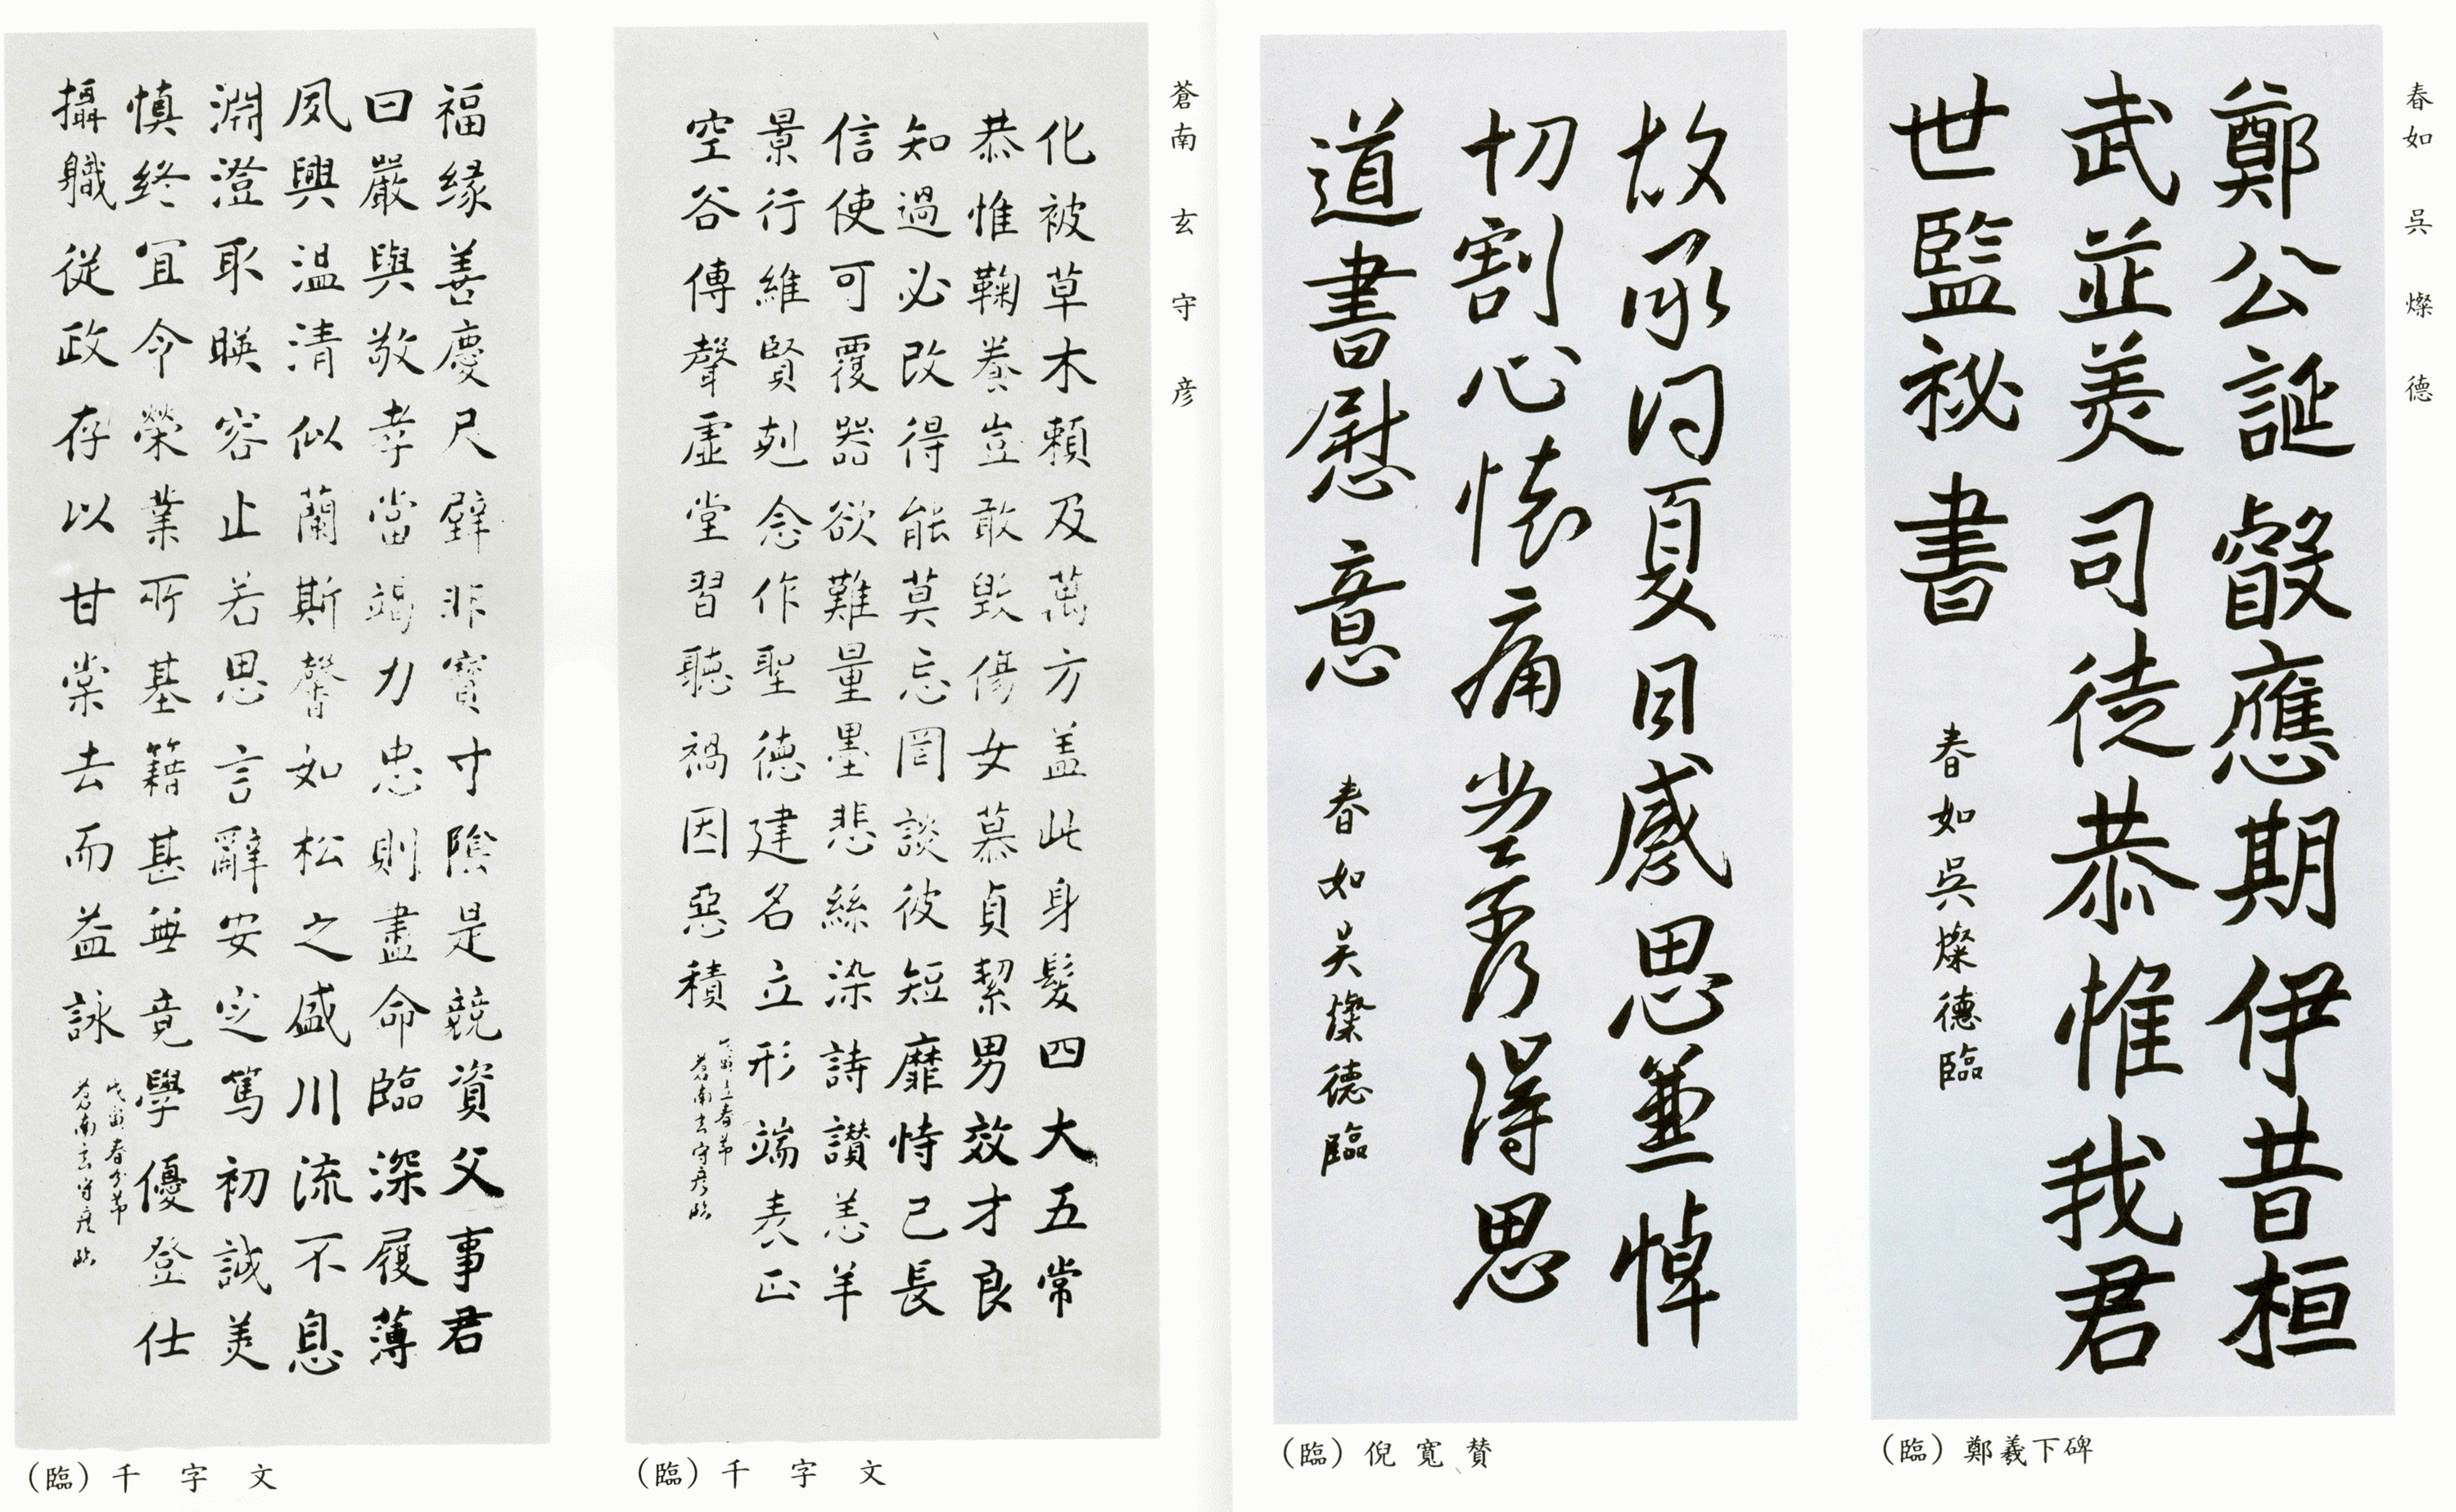 春如 吳燦德
鄭公誕叡應期伊昔桓
武並美司徒恭惟我君
世監祕書 春如吳燦德臨
(臨) 鄭羲下碑
故承問夏目感思兼悼
切割心懷痛當奈何得思
道書慰意 春如吳燦德臨
(臨) 倪寬賛
蒼南 玄守彦
化被草木賴及萬方盖此身髮四大五常
恭惟鞠養豈敢毀傷女慕貞絜男效才良
知過必改得能莫忘罔談彼短靡恃己長
信使可覆器欲難量墨悲絲染詩讃羔羊
景行維賢剋念作聖德建名立形端表正
空谷傳聲虛堂習聽禍因惡積
寅上春節
蒼南玄守彦臨
(臨) 千字文
福緣善慶尺璧非寶寸陰是競資父事君
曰嚴與敬孝當竭力忠則盡命臨深履薄
夙興温凊似蘭斯馨如松之盛川流不息
淵澄取暎容止若思言辭安定篤初誠美
慎終宜令榮業所基籍甚無竟學優登仕
攝職從政存以甘棠去而益詠
戊寅春分節
蒼南玄守彦臨
(臨) 千字文